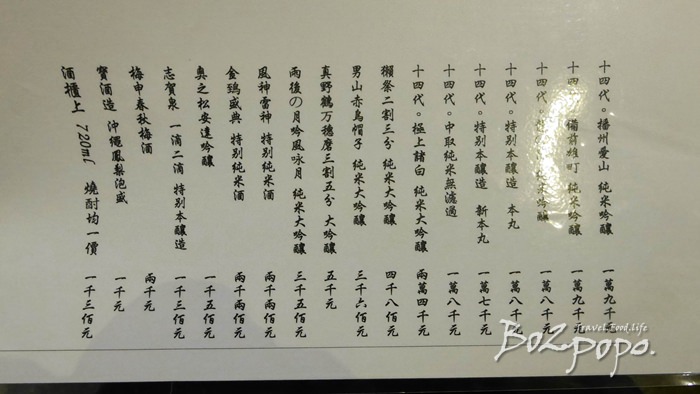 十四代。播州愛山 純米吟釀 一萬九千元
十四代。備前雄町 純米吟釀 一萬九千元
十四代。 純米吟釀 一萬八千元
十四代。特別本釀造 本丸 一萬八千元
十四代。特別本釀造 新本丸 一萬七千元
十四代。中取純米無濾過 一萬八千元
十四代。極上諸白 純米大吟釀 兩萬四千元
獺祭二割三分 純米大吟釀 四千八佰元
男山赤烏帽子 純米大吟釀 三千六佰元
真野鶴万穗磨三割五分 大吟釀 五千元
雨後の月吟風咏月 純米大吟釀 三千五佰元
風神雷神 特別純米酒 兩千兩佰元
金鵄盛典 特別純米酒 兩千兩佰元
奥之松安達吟釀 一千五佰元
志賀泉 一滴二滴 特別本釀造 一千三佰元
梅申春秋梅酒 兩千元
寶酒造 沖繩鳳梨泡盛 一千元
酒櫃上 720ml 燒酎均一價 一千三佰元
Travel.Food.Life
Bozpopo.